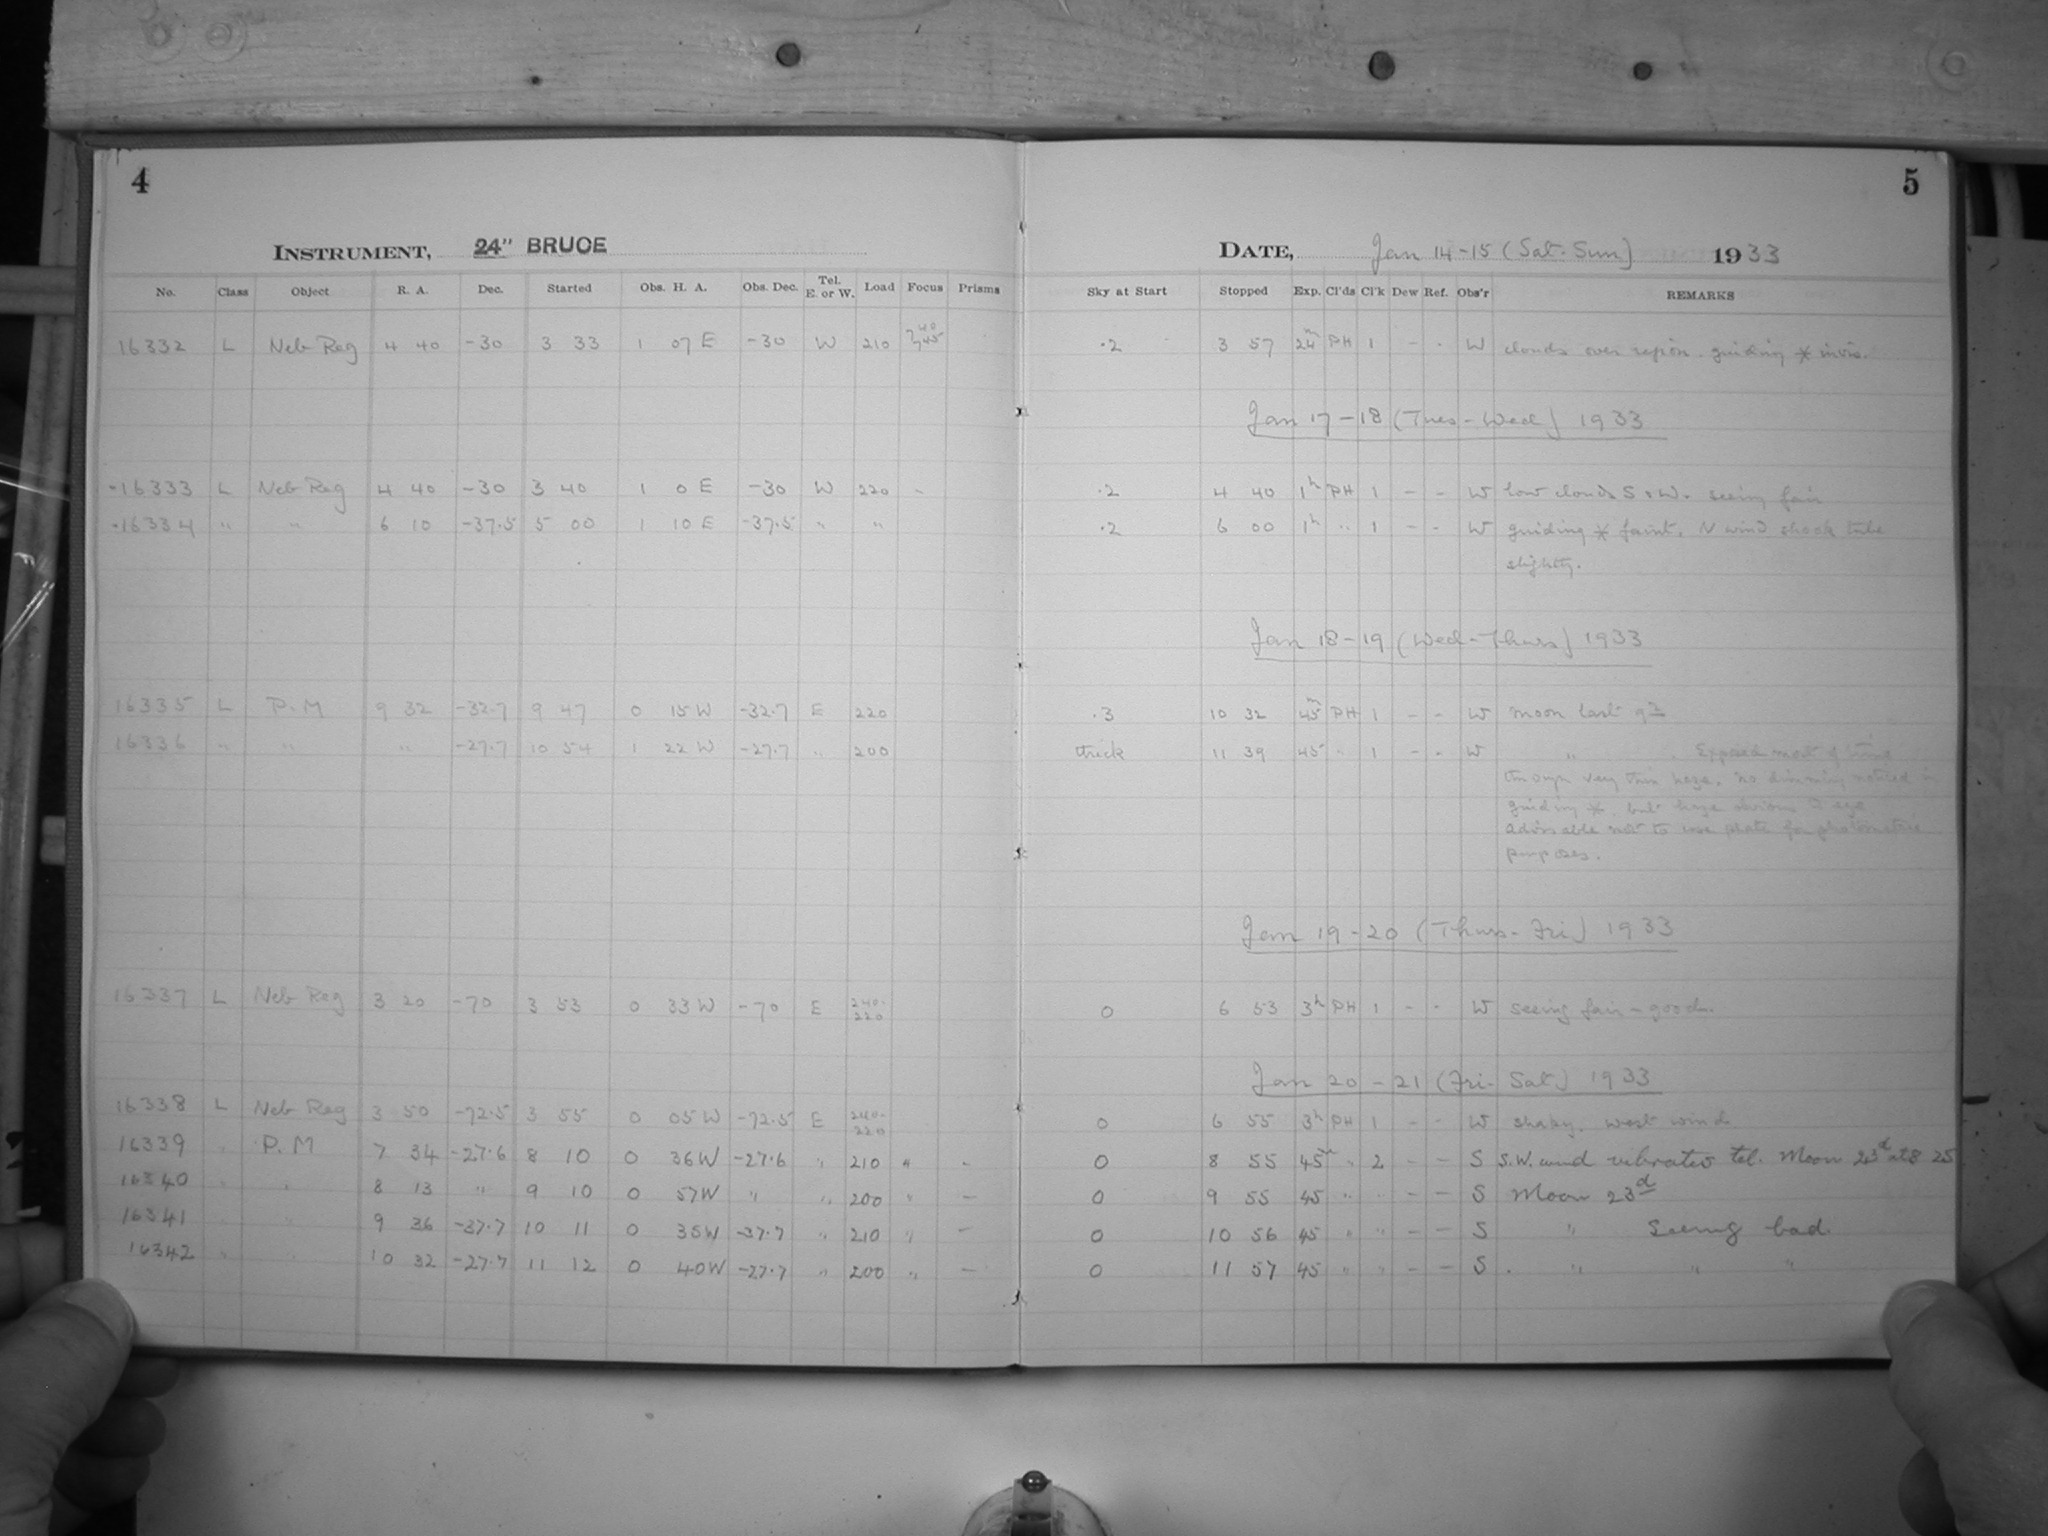 4
5
INSTRUMENT, 24" BRUCE
DATE, Jan 14-15 (Sat-Sun) 1933
No. Class Object R. A. Dec. Started Obs. H. A. Obs. Dec. Tel. E. or W. Load Focus Prisms Sky at Start Stopped Exp. Cl'ds Cl'k Dew Ref. Obs'r REMARKS
16332 L Neb Reg 4 40 -30 3 33 1 07 E -30 W 210 .2 3 57 24m PH 1 - - W clouds over region. guiding * invis.
Jan 17-18 (Tues-Wed) 1933
-16333 L Neb Reg 4 40 -30 3 40 1 0 E -30 W 220 - .2 4 40 1h PH 1 - - W low clouds S & W. seeing fair
-16334 " " 6 10 -37.5 5 00 1 10 E -37.5 " " .2 6 00 1h " 1 - - W guiding * faint, N wind shook tube
slightly.
Jan 18-19 (Wed-Thurs) 1933
16335 L P.M 9 32 -32.7 9 47 0 15 W -32.7 E 220 .3 10 32 45m PH 1 - - W moon last qr
16336 " " " -27.7 10 54 1 22 W -27.7 " 200 thick 11 39 45 " 1 - - W " Exposed most of time
through very thin haze. no dimming noticed in
guiding *, but haze obvious
advisable not to use plate for photometric
purposes.
Jan 19-20 (Thurs-Fri) 1933
16337 L Neb Reg 3 20 -70 3 53 0 33 W -70 E 240-220 0 6 53 3h PH 1 - - W seeing fair - good.
Jan 20-21 (Fri-Sat) 1933
16338 L Neb Reg 3 50 -72.5 3 55 0 05 W -72.5 E 240-220 0 6 55 3h PH 1 - - W shaky. west wind
16339 " P.M 7 34 -27.6 8 10 0 36 W -27.6 " 210 " - 0 8 55 45m " 2 - - S S.W. wind vibrates tel. Moon 23d at 8 25
16340 " " 8 13 " 9 10 0 57 W " " 200 " - 0 9 55 45 " " - - S Moon 23d
16341 " " 9 36 -37.7 10 11 0 35 W -37.7 " 210 " - 0 10 56 45 " " - - S " Seeing bad.
16342 " " 10 32 -27.7 11 12 0 40 W -27.7 " 200 " - 0 11 57 45 " " - - S " " "